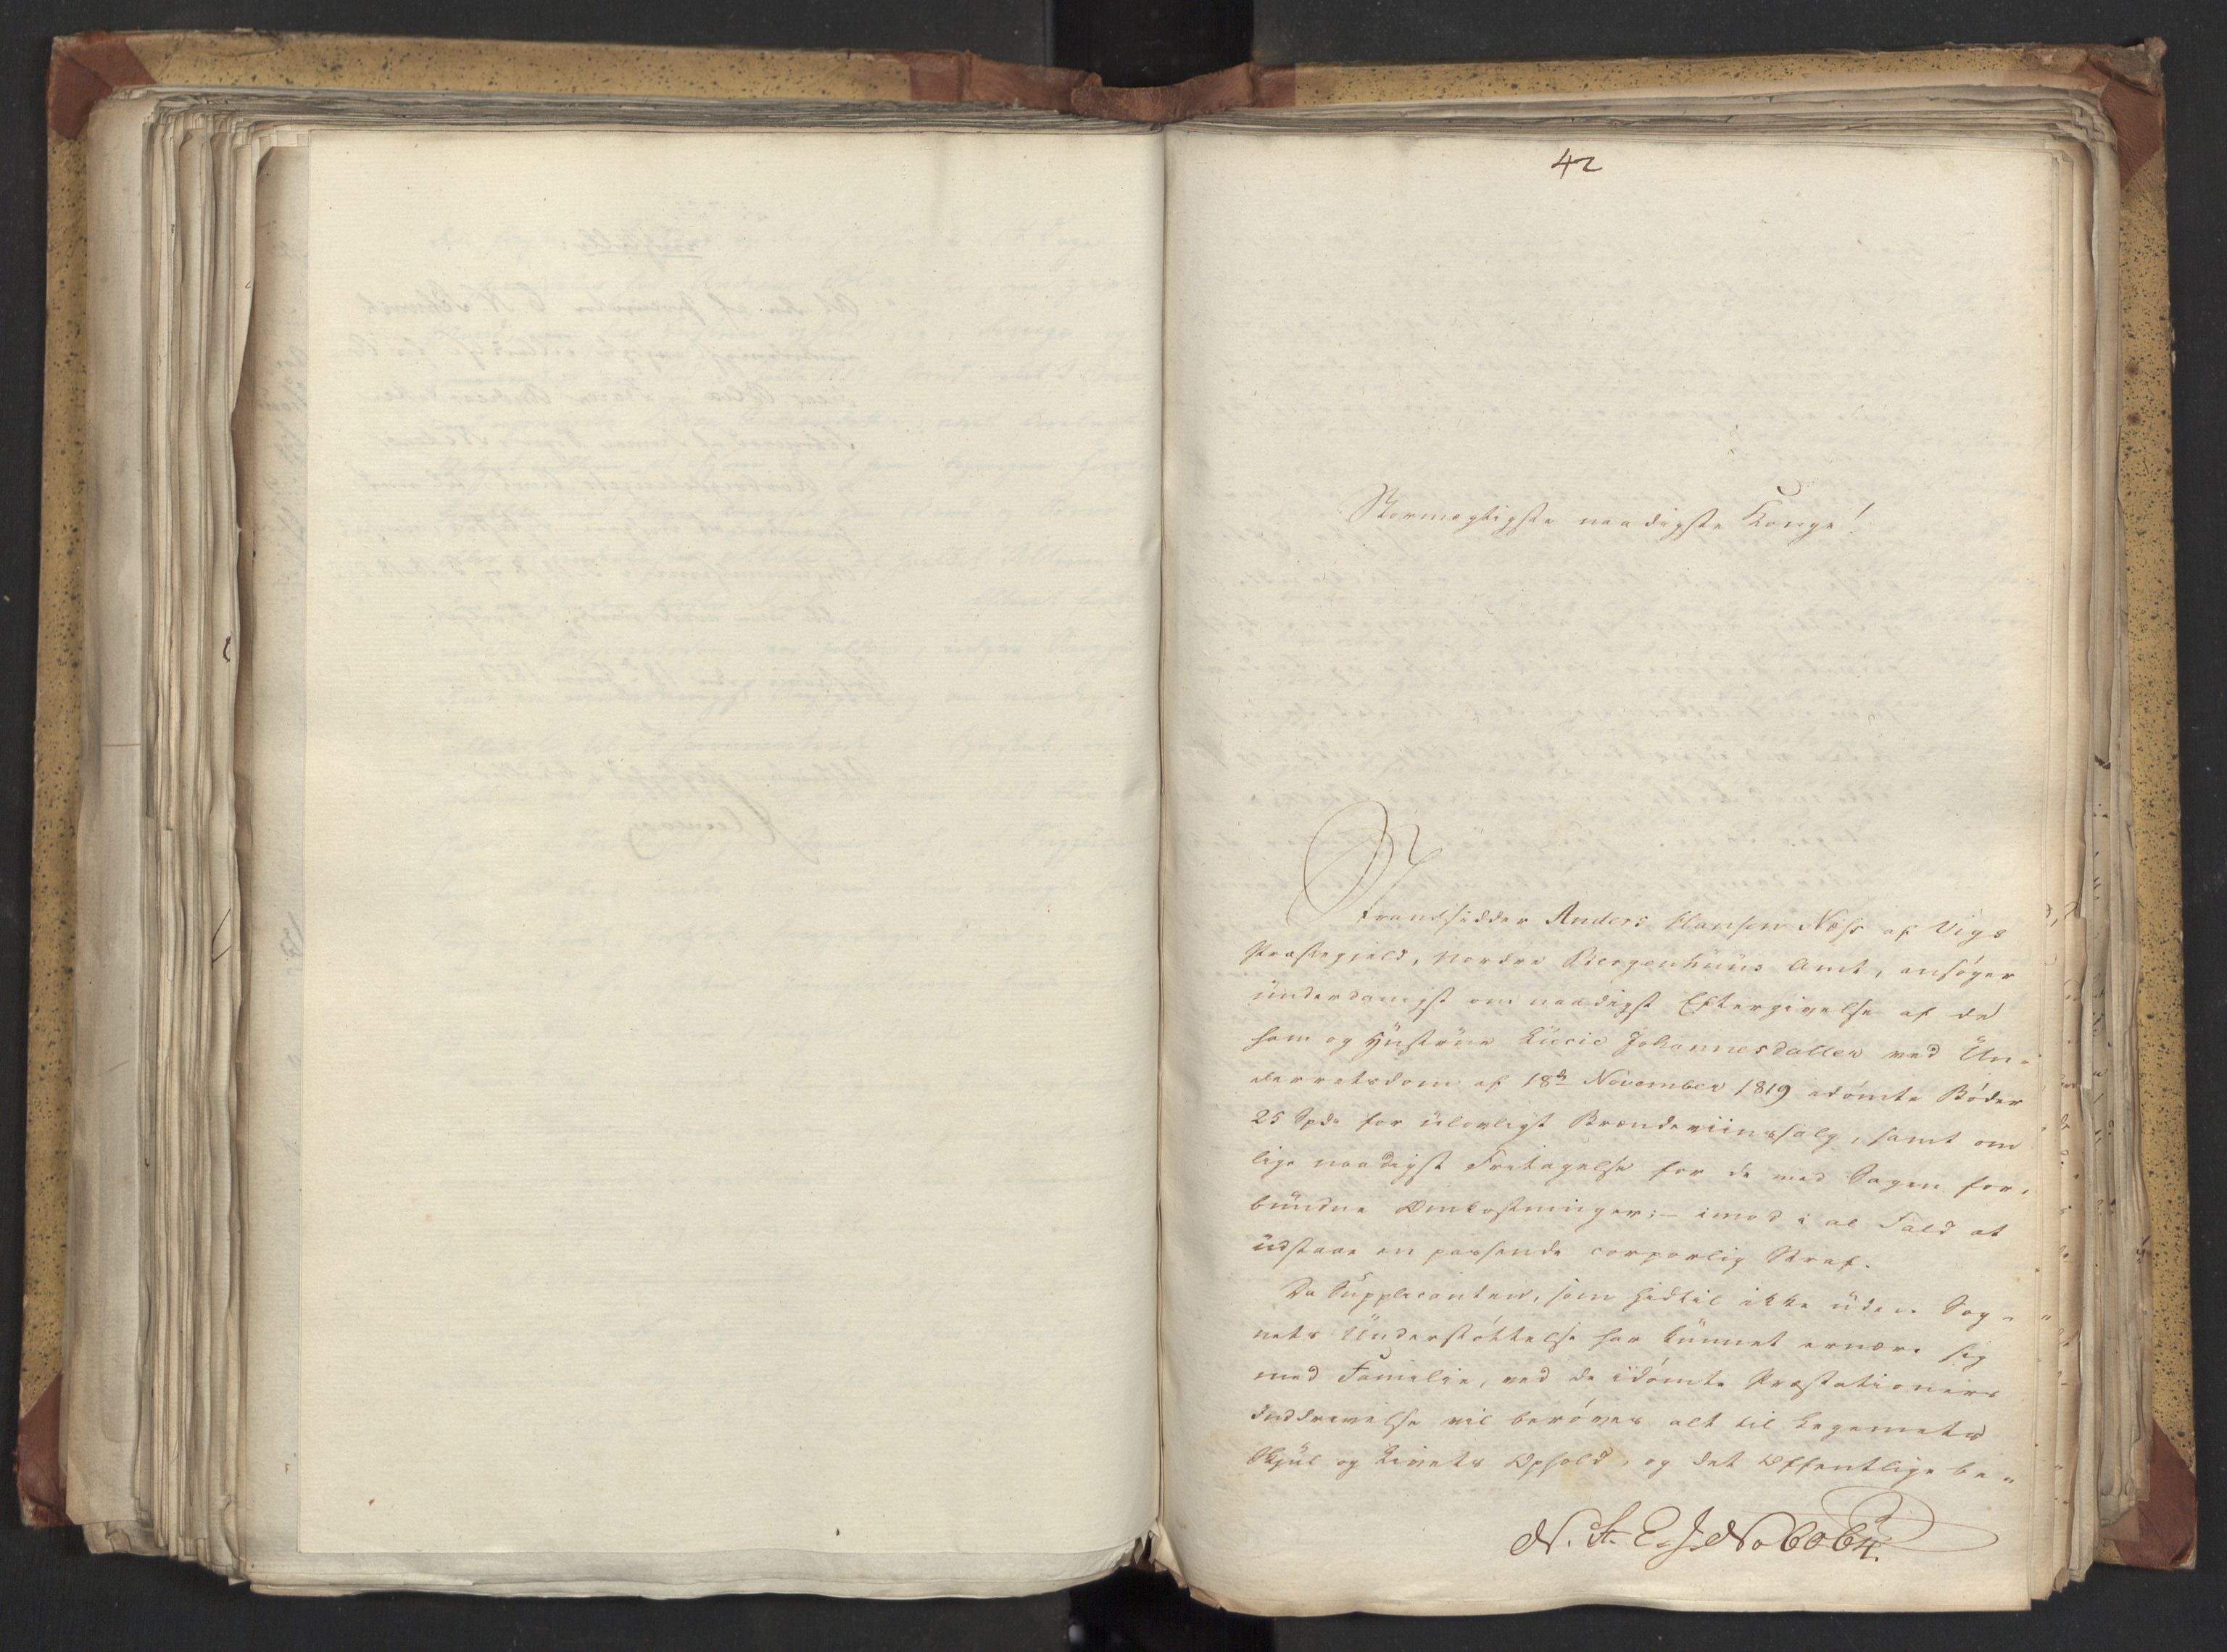 42
Stormægtigste naadigste Konge!
Strandsidder Anders Hansen Næss af Vigs
Præstegjæld, Nordre Bergenhuus Amt, ansøger
underdanigst om naadigst Eftergivelse af de
ham og Hustrue Lucie Johannesdatter ved Un-
derretsdom af 18de November 1819 idømte Bøder
25 Spd. for ulovligt Brændeviinssalg, samt om
lige naadigst Fritagelse for de med Sagen for-
bundne Omkostninger; – imod i al Fald at
udstaae en passende corporlig Straf.
Da Supplicanten, som hidtil ikke uden Sog-
nets Understøttelse har kunnet ernære sig
med Familie, ved de idømte Præstationers
Inddrivelse vil berøves alt til Legemets
Skjul og Livets Ophold, og det Offentlige be-